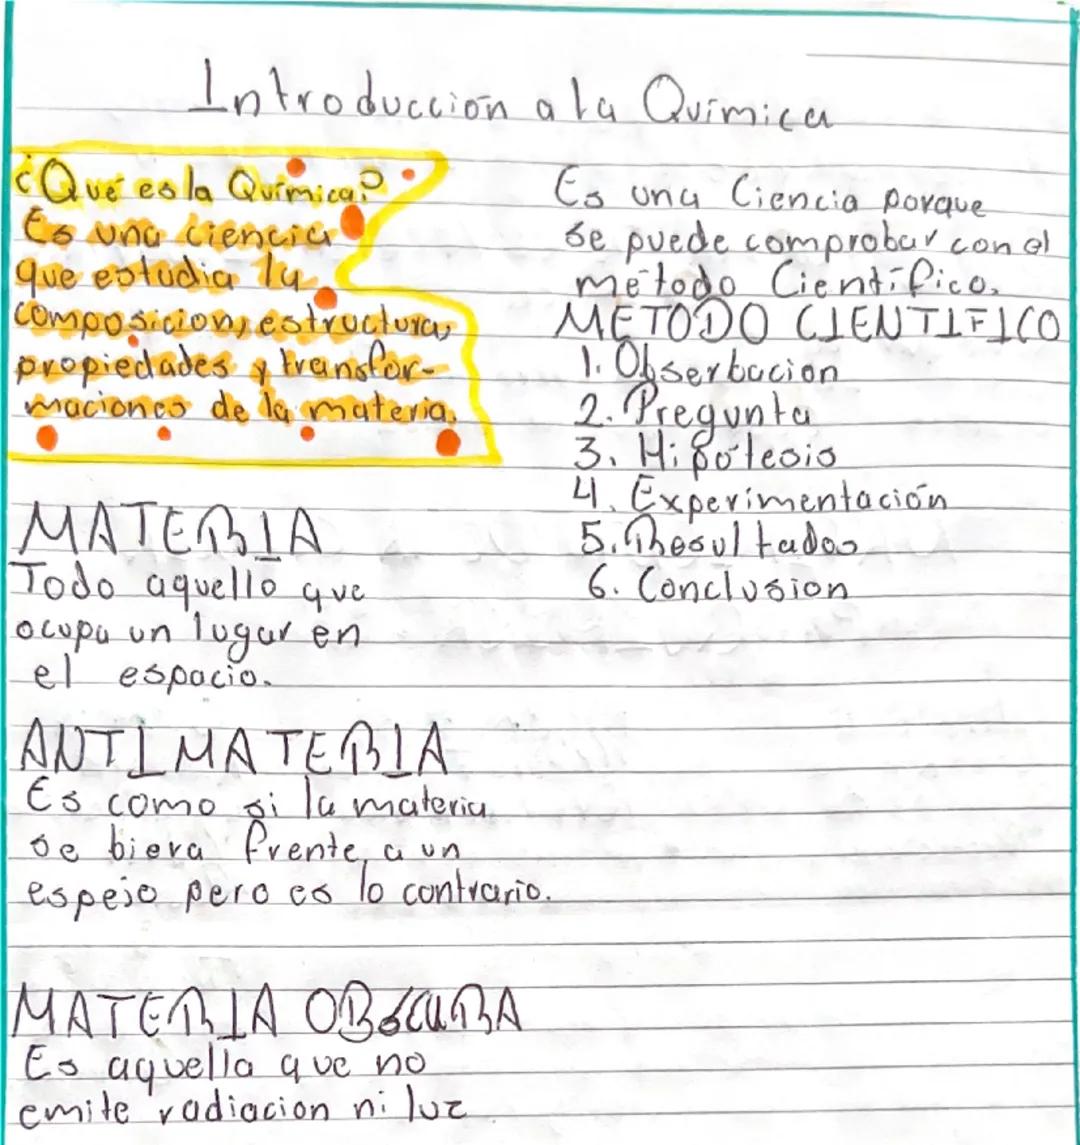 Introducción a la Química
¿Qué es la Química?
Es una ciencia
que estudia la
composicion, estructura,
propiedades y transfor-
maciones de la materia.
MATERIA
Todo aquello que
ocupa un lugar en
el espacio.
ANTIMATERIA
Es como si la materia
se biera frente a un
espejo pero es lo contrario.
MATERIA OBSCURA
Es aquella que no
emite radiacion ni luz
Es una Ciencia porque
se puede comprobar con el
método Científico.
METODO CIENTIFICO
1. Obserbacion
2. Pregunta
3. Hipótesis
4. Experimentación
5. Resultados
6. Conclusion